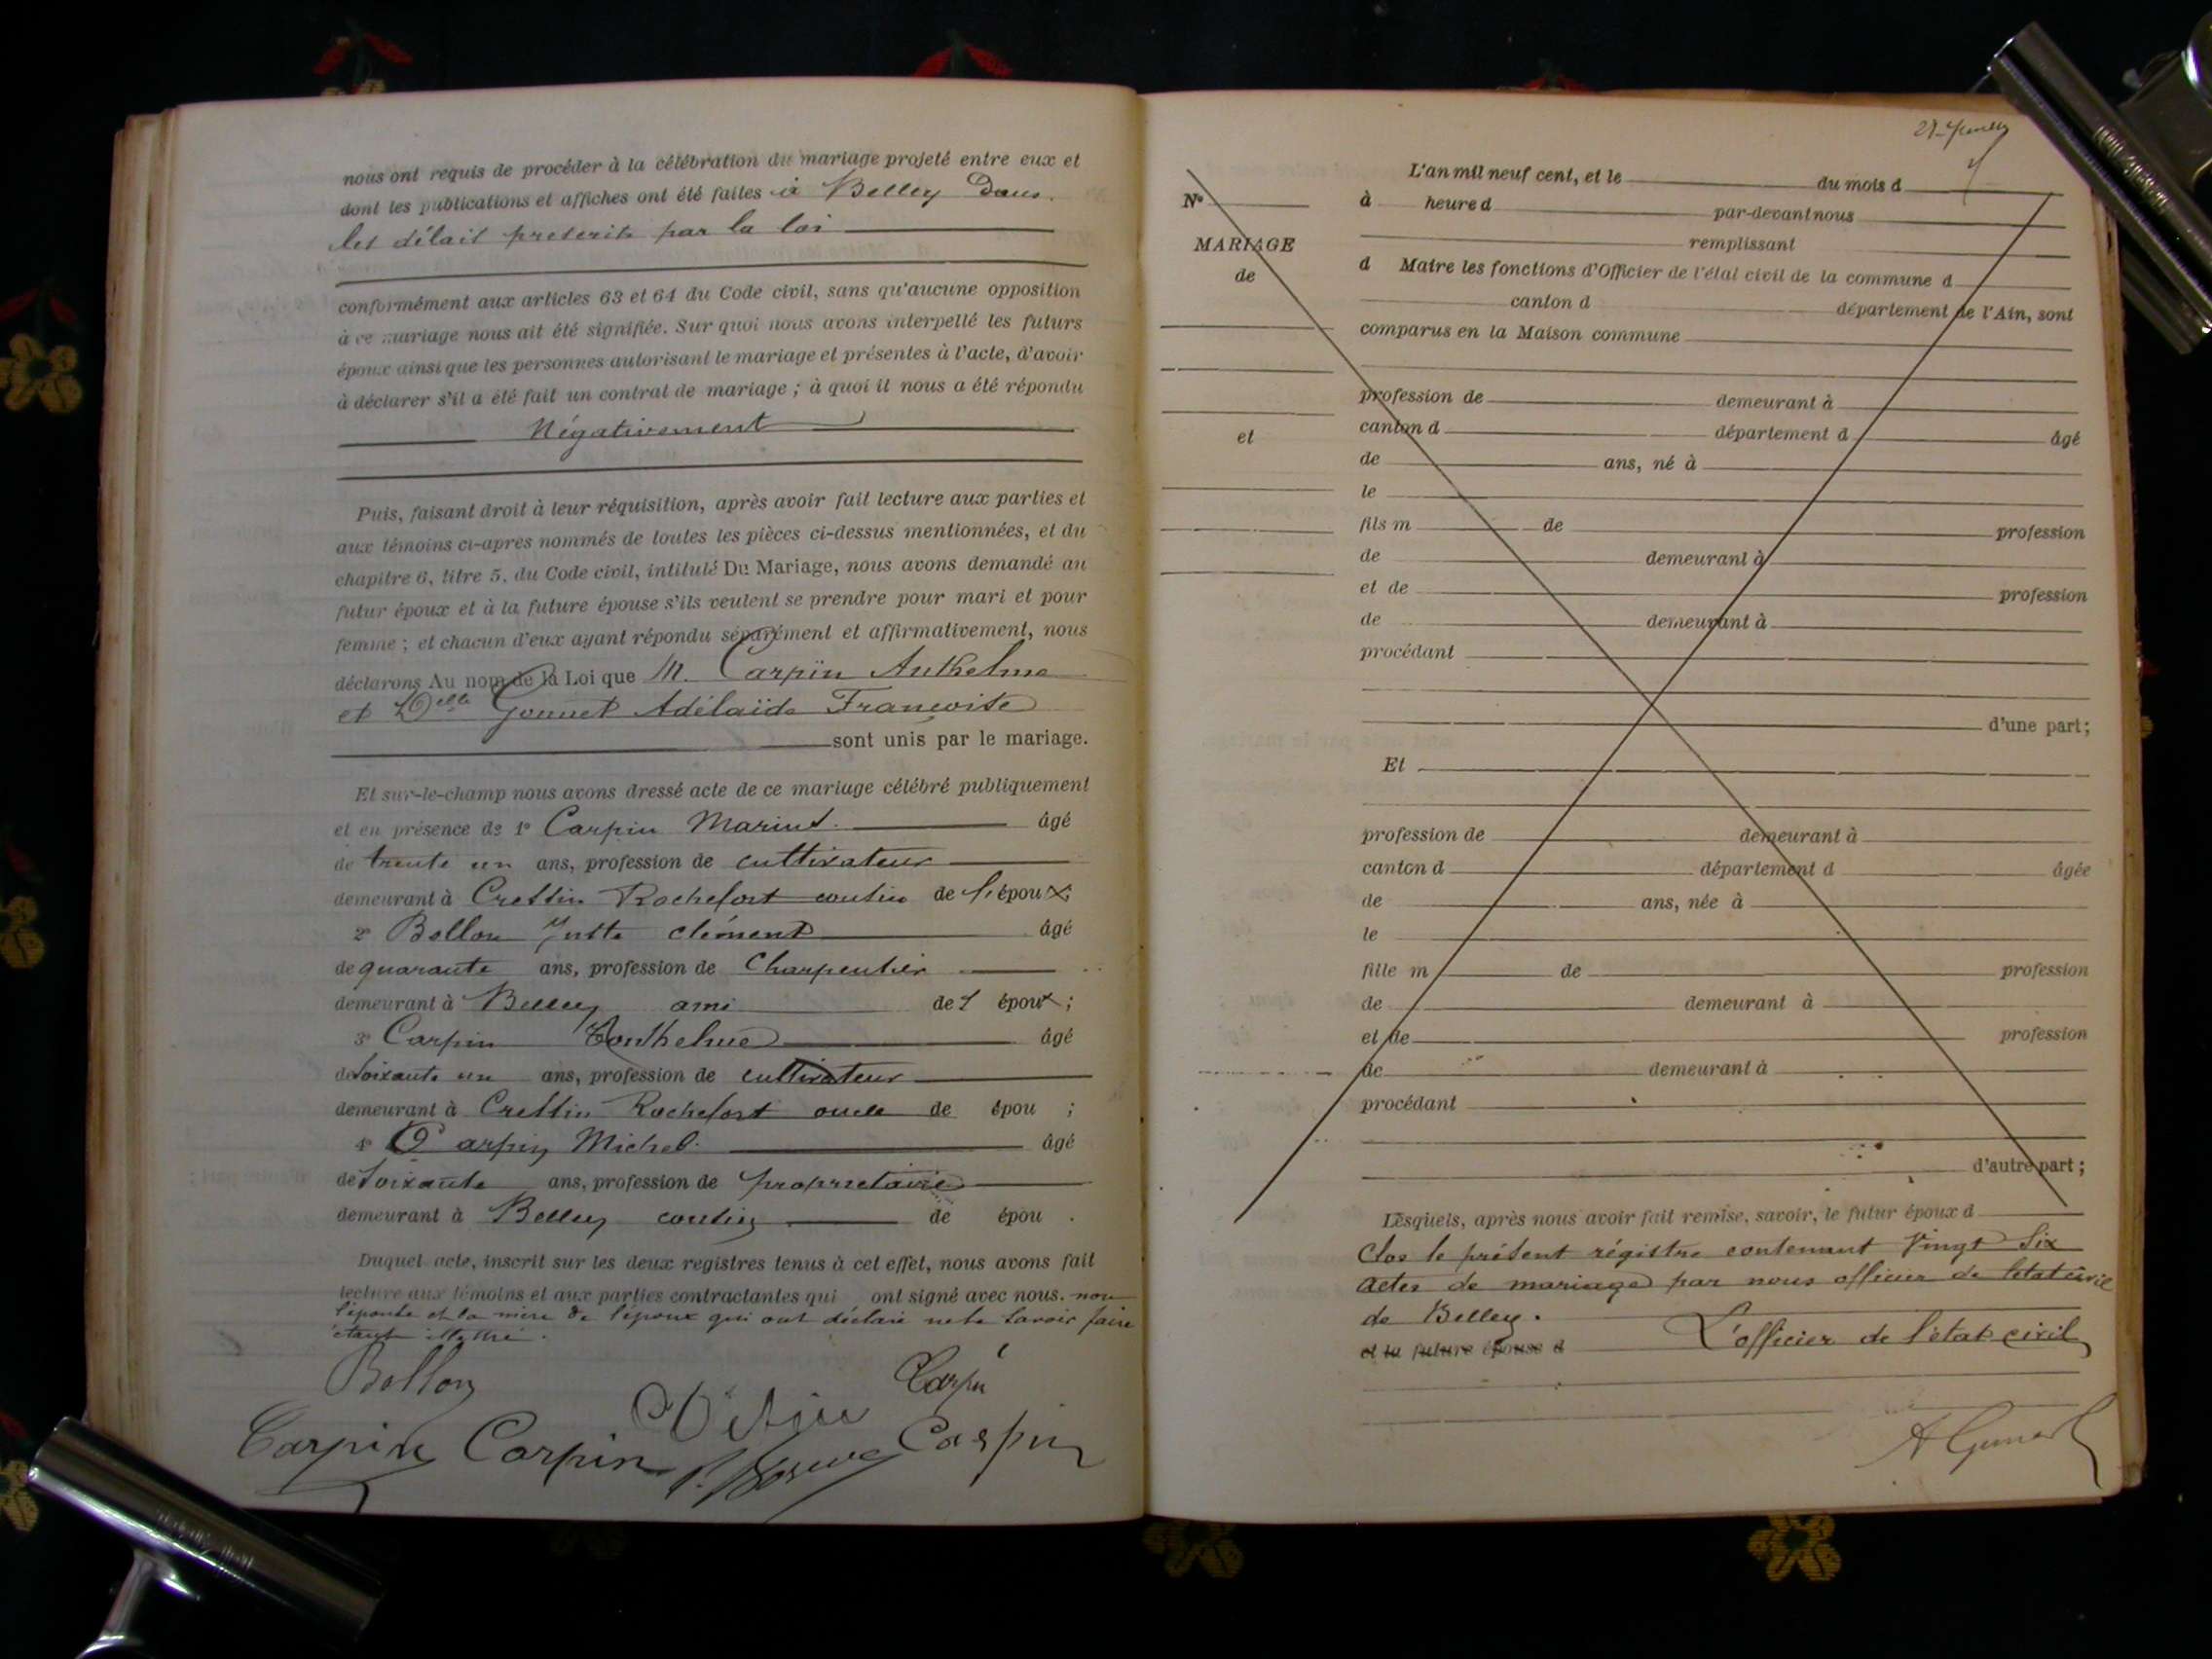 nous ont requis de procéder à la célébration du mariage projeté entre eux et
dont les publications et affiches ont été faites à Belley Dans
les délais prescrits par la loi
conformément aux articles 63 et 64 du Code civil, sans qu'aucune opposition
à ce mariage nous ait été signifiée. Sur quoi nous avons interpellé les futurs
époux ainsi que les personnes autorisant le mariage et présentes à l'acte, d'avoir
à déclarer s'il a été fait un contrat de mariage ; à quoi il nous a été répondu
Négativement
Puis, faisant droit à leur réquisition, après avoir fait lecture aux parties et
aux témoins ci-après nommés de toutes les pièces ci-dessus mentionnées, et du
chapitre 6, titre 5, du Code civil, intitulé Du Mariage, nous avons demandé au
futur époux et à la future épouse s'ils veulent se prendre pour mari et pour
femme ; et chacun d'eux ayant répondu séparément et affirmativement, nous
déclarons Au nom de la Loi que M. Carpin Anthelme
et Delle Gonnet Adélaïde Françoise
sont unis par le mariage.
Et sur-le-champ nous avons dressé acte de ce mariage célébré publiquement
et en présence de 1° Carpin Marius âgé
de trente un ans, profession de cultivateur
demeurant à Crettin Rochefort cousin de l'époux;
2° Bollon Juste clément âgé
de quarante ans, profession de Charpentier
demeurant à Belley ami de l époux ;
3° Carpin Anthelme âgé
de soixante un ans, profession de cultivateur
demeurant à Crettin Rochefort oncle de épou ;
4° Carpin Michel âgé
de soixante ans, profession de propriétaire
demeurant à Belley cousin de épou .
Duquel acte, inscrit sur les deux registres tenus à cet effet, nous avons fait
lecture aux témoins et aux parties contractantes qui ont signé avec nous. non
l'épouse et la mère de l'époux qui ont déclaré ne le savoir faire
étant illettré.
Bollon
Carpin
Carpin Carpin Carpin
L'an mil neuf cent, et le du mois d
N° à heure d par-devant nous
remplissant
MARIAGE
de
d Maire les fonctions d'Officier de l'état civil de la commune d
canton d département de l'Ain, sont
comparus en la Maison commune
profession de demeurant à
et
canton d département d âgé
de ans, né à
le
fils m de profession
de demeurant à
et de profession
de demeurant à
procédant
d'une part;
Et
profession de demeurant à
canton d département d âgée
de ans, née à
le
fille m de profession
de demeurant à
et de profession
de demeurant à
procédant
d'autre part ;
Lesquels, après nous avoir fait remise, savoir, le futur époux d
Clos le présent régistre contenant Vingt Six
actes de mariage par nous officier de l'état civil
de Belley.
et la future épouse d L'officier de l'état civil